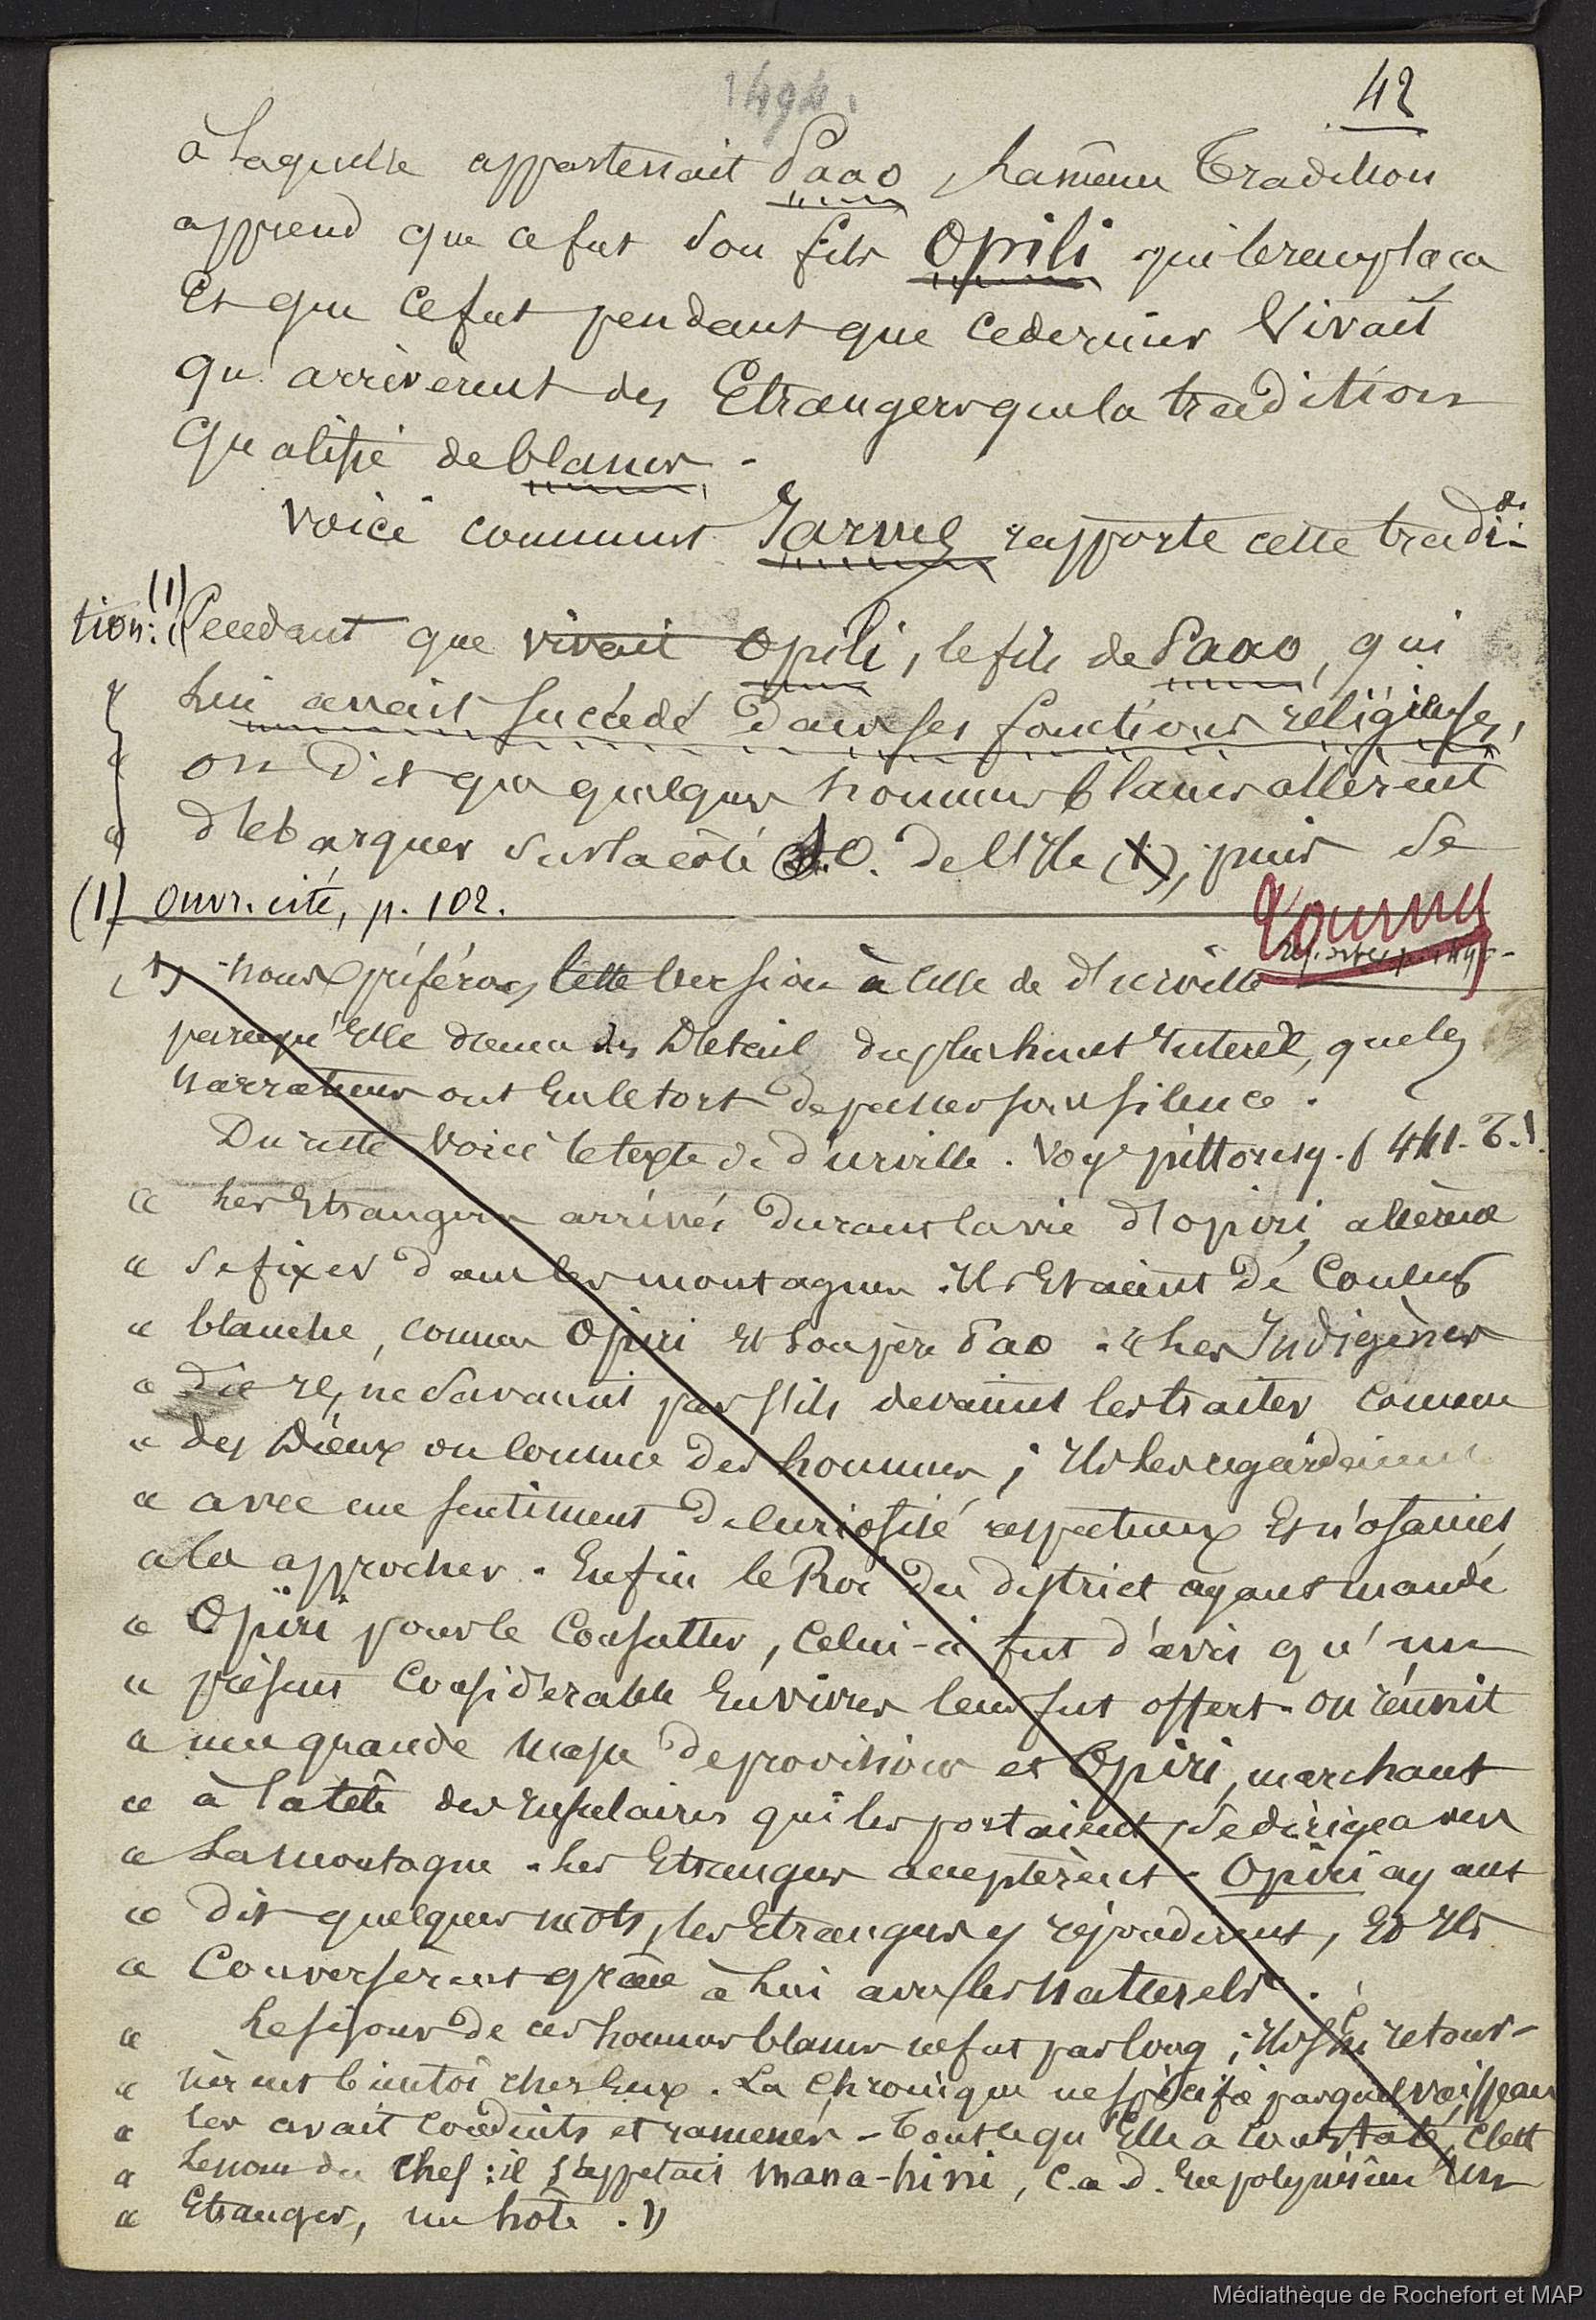 1494.
42
à laquelle appartenait Paao, la même tradition
apprend que ce fut son fils Opili qui le remplaça
Et que ce fut pendant que ce dernier Vivait
qu'arrivèrent des Etrangers que la tradition
qualifie de blancs.
Voici comment Jarves rapporte cette tradi-
tion: (1) « Pendant que vivait Opili, le fils de Paao, qui
« lui avait succédé dans ses fonctions religieuses,
« on dit que quelques hommes blancs allèrent
« débarquer sur la côté S.O. de l'Ile (1), puis se
(1) Ouvr. cité, p. 102.
Tournez
(1) - nous préférons cette version à celle de d'urville
parcequ'Elle donne des Détail du plus haut Interêt, que les
narrateurs ont eu le tort de passer sous silence.
Du reste Voici le texte de d'urville. Voye pittoresq. p 411. T. 1.
« les Etrangers arrivés durant la vie d'opiri, allèrent
« se fixer dans les montagnes. Ils Etaient de Couleur
« blanche, comme Opiri et son père Pao. Les Indigènes
« ne savaient pas s'ils devaient les traiter comme
« des Dieux ou comme des hommes; Ils les regardaient
« avec un sentiment de curiosité respectueux Et n'osaient
« les approcher. Enfin le Roi du district ayant mandé
« Opiri pour le Consulter, Celui-ci fut d'avis qu'un
« présent Considerable En vivres leur fut offert. on réunit
« une grande masse de provisions et Opiri, marchant
« à la tête des Insulaires qui les portaient, se dirigea vers
« La montagne. Les Etrangers acceptèrent. Opiri ayant
« dit quelques mots, les Etrangers y répondirent, Et Ils
« Conversèrent grâce à lui avec les naturels.
« Le séjour de ces hommes blancs ne fut pas long; Ils s'en retour-
« nèrent bientôt chez Eux. La Chronique ne spécifie pas quel vaisseau
« les avait conduits et ramenés. Tout ce qu'Elle a Constaté, C'est
« Le nom du Chef: il s'appelait Mana-hini, C.a.d. En polynésien Un
« Etranger, un hôte. »